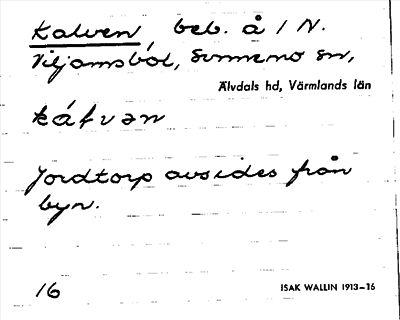 Kalven, beb. å 1 N.
Viljamsböl, Sunnemo sn,
Älvdals hd, Värmlands län
káƚvən
Jordtorp avsides från
byn.
16
ISAK WALLIN 1913–16